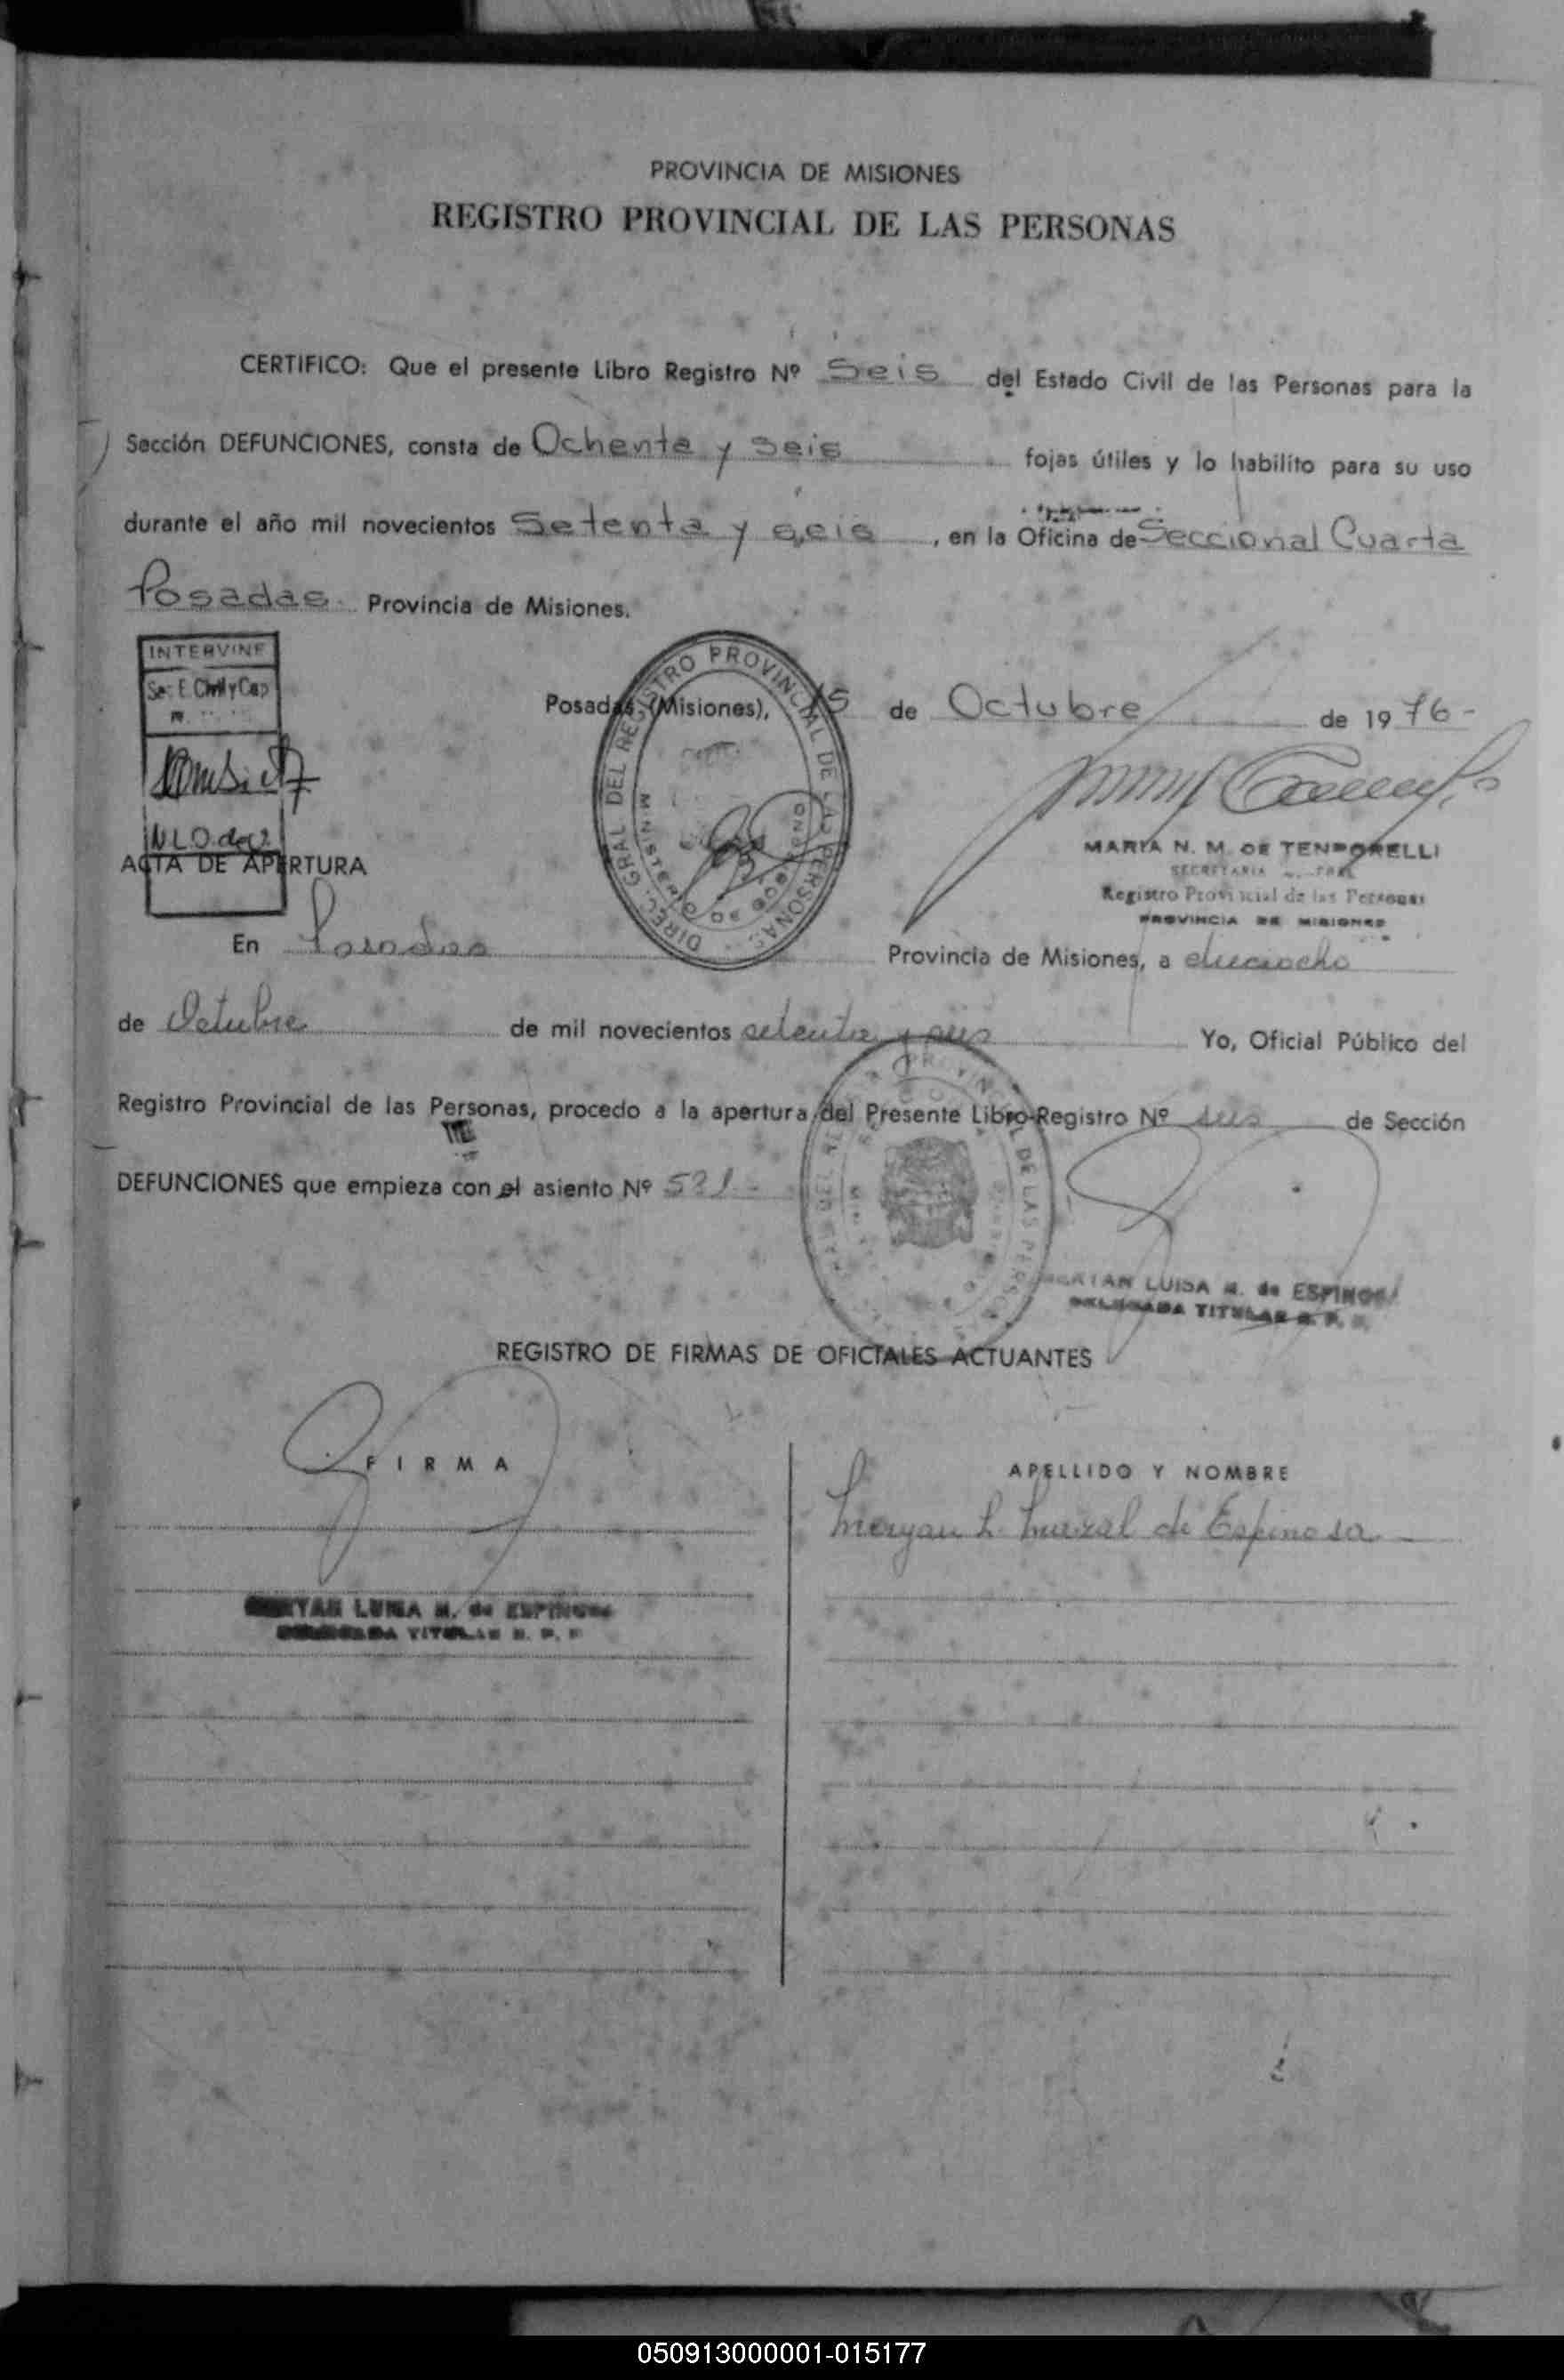 PROVINCIA DE MISIONES
REGISTRO PROVINCIAL DE LAS PERSONAS
CERTIFICO: Que el presente Libro Registro Nº Seis del Estado Civil de las Personas para la
Sección DEFUNCIONES, consta de Ochenta y seis fojas útiles y lo habilito para su uso
durante el año mil novecientos Setenta y seis, en la Oficina de Seccional Cuarta
Posadas. Provincia de Misiones.
INTERVINE
Sec. E. Civil y Cap
Posadas, (Misiones), 15 de Octubre de 1976-
DIREC. GRAL DEL REGISTRO PROVINCIAL DE LAS PERSONAS
MINISTERIO DE GOBIERNO
MARIA N. M. DE TEMPORELLI
SECRETARIA
Registro Provincial de las Personas
PROVINCIA DE MISIONES
ACTA DE APERTURA
En Posadas Provincia de Misiones, a dieciocho
de Octubre de mil novecientos setenta y seis Yo, Oficial Público del
Registro Provincial de las Personas, procedo a la apertura del Presente Libro-Registro Nº seis de Sección
DEFUNCIONES que empieza con el asiento Nº 521-
LUISA M. de ESPINOSA
DELEGADA TITULAR R. P.
REGISTRO DE FIRMAS DE OFICIALES ACTUANTES
FIRMA
APELLIDO Y NOMBRE
L. de Espinosa
LUISA M. de ESPINOSA
DELEGADA TITULAR R. P.
050913000001-015177